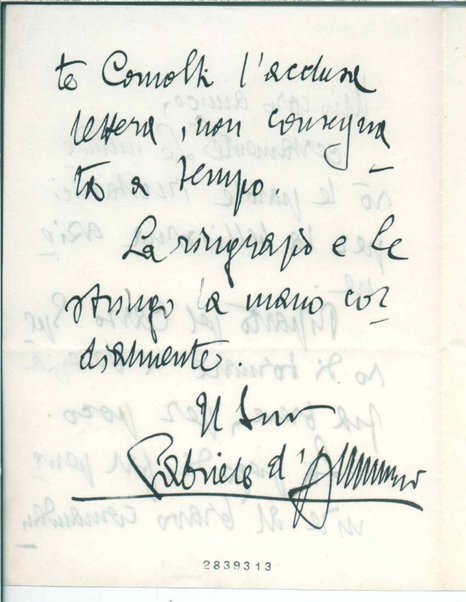 te Comolli l'acclusa
lettera, non consegna-
ta a tempo.
La ringrazio e Le
stringo la mano cor-
dialmente.
Il Suo
Gabriele d'Annunzio
2839313